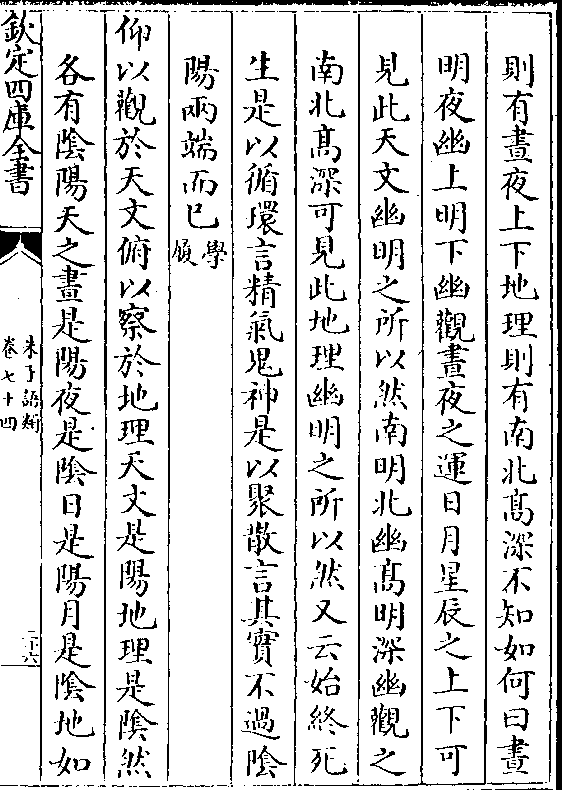 則有晝夜上下地理則有南北髙深不知如何曰晝
明夜幽上明下幽觀晝夜之運日月星辰之上下可
見此天文幽明之所以然南明北幽髙明深幽觀之
南北髙深可見此地理幽明之所以然又云始終死
生是以循環言精氣鬼神是以聚散言其實不過陰
陽兩端而已學履
仰以觀於天文俯以察於地理天文是陽地理是陰然
各有陰陽天之晝是陽夜是陰日是陽月是陰地如
欽定四庫全書
朱子語類
卷七十四
二十六